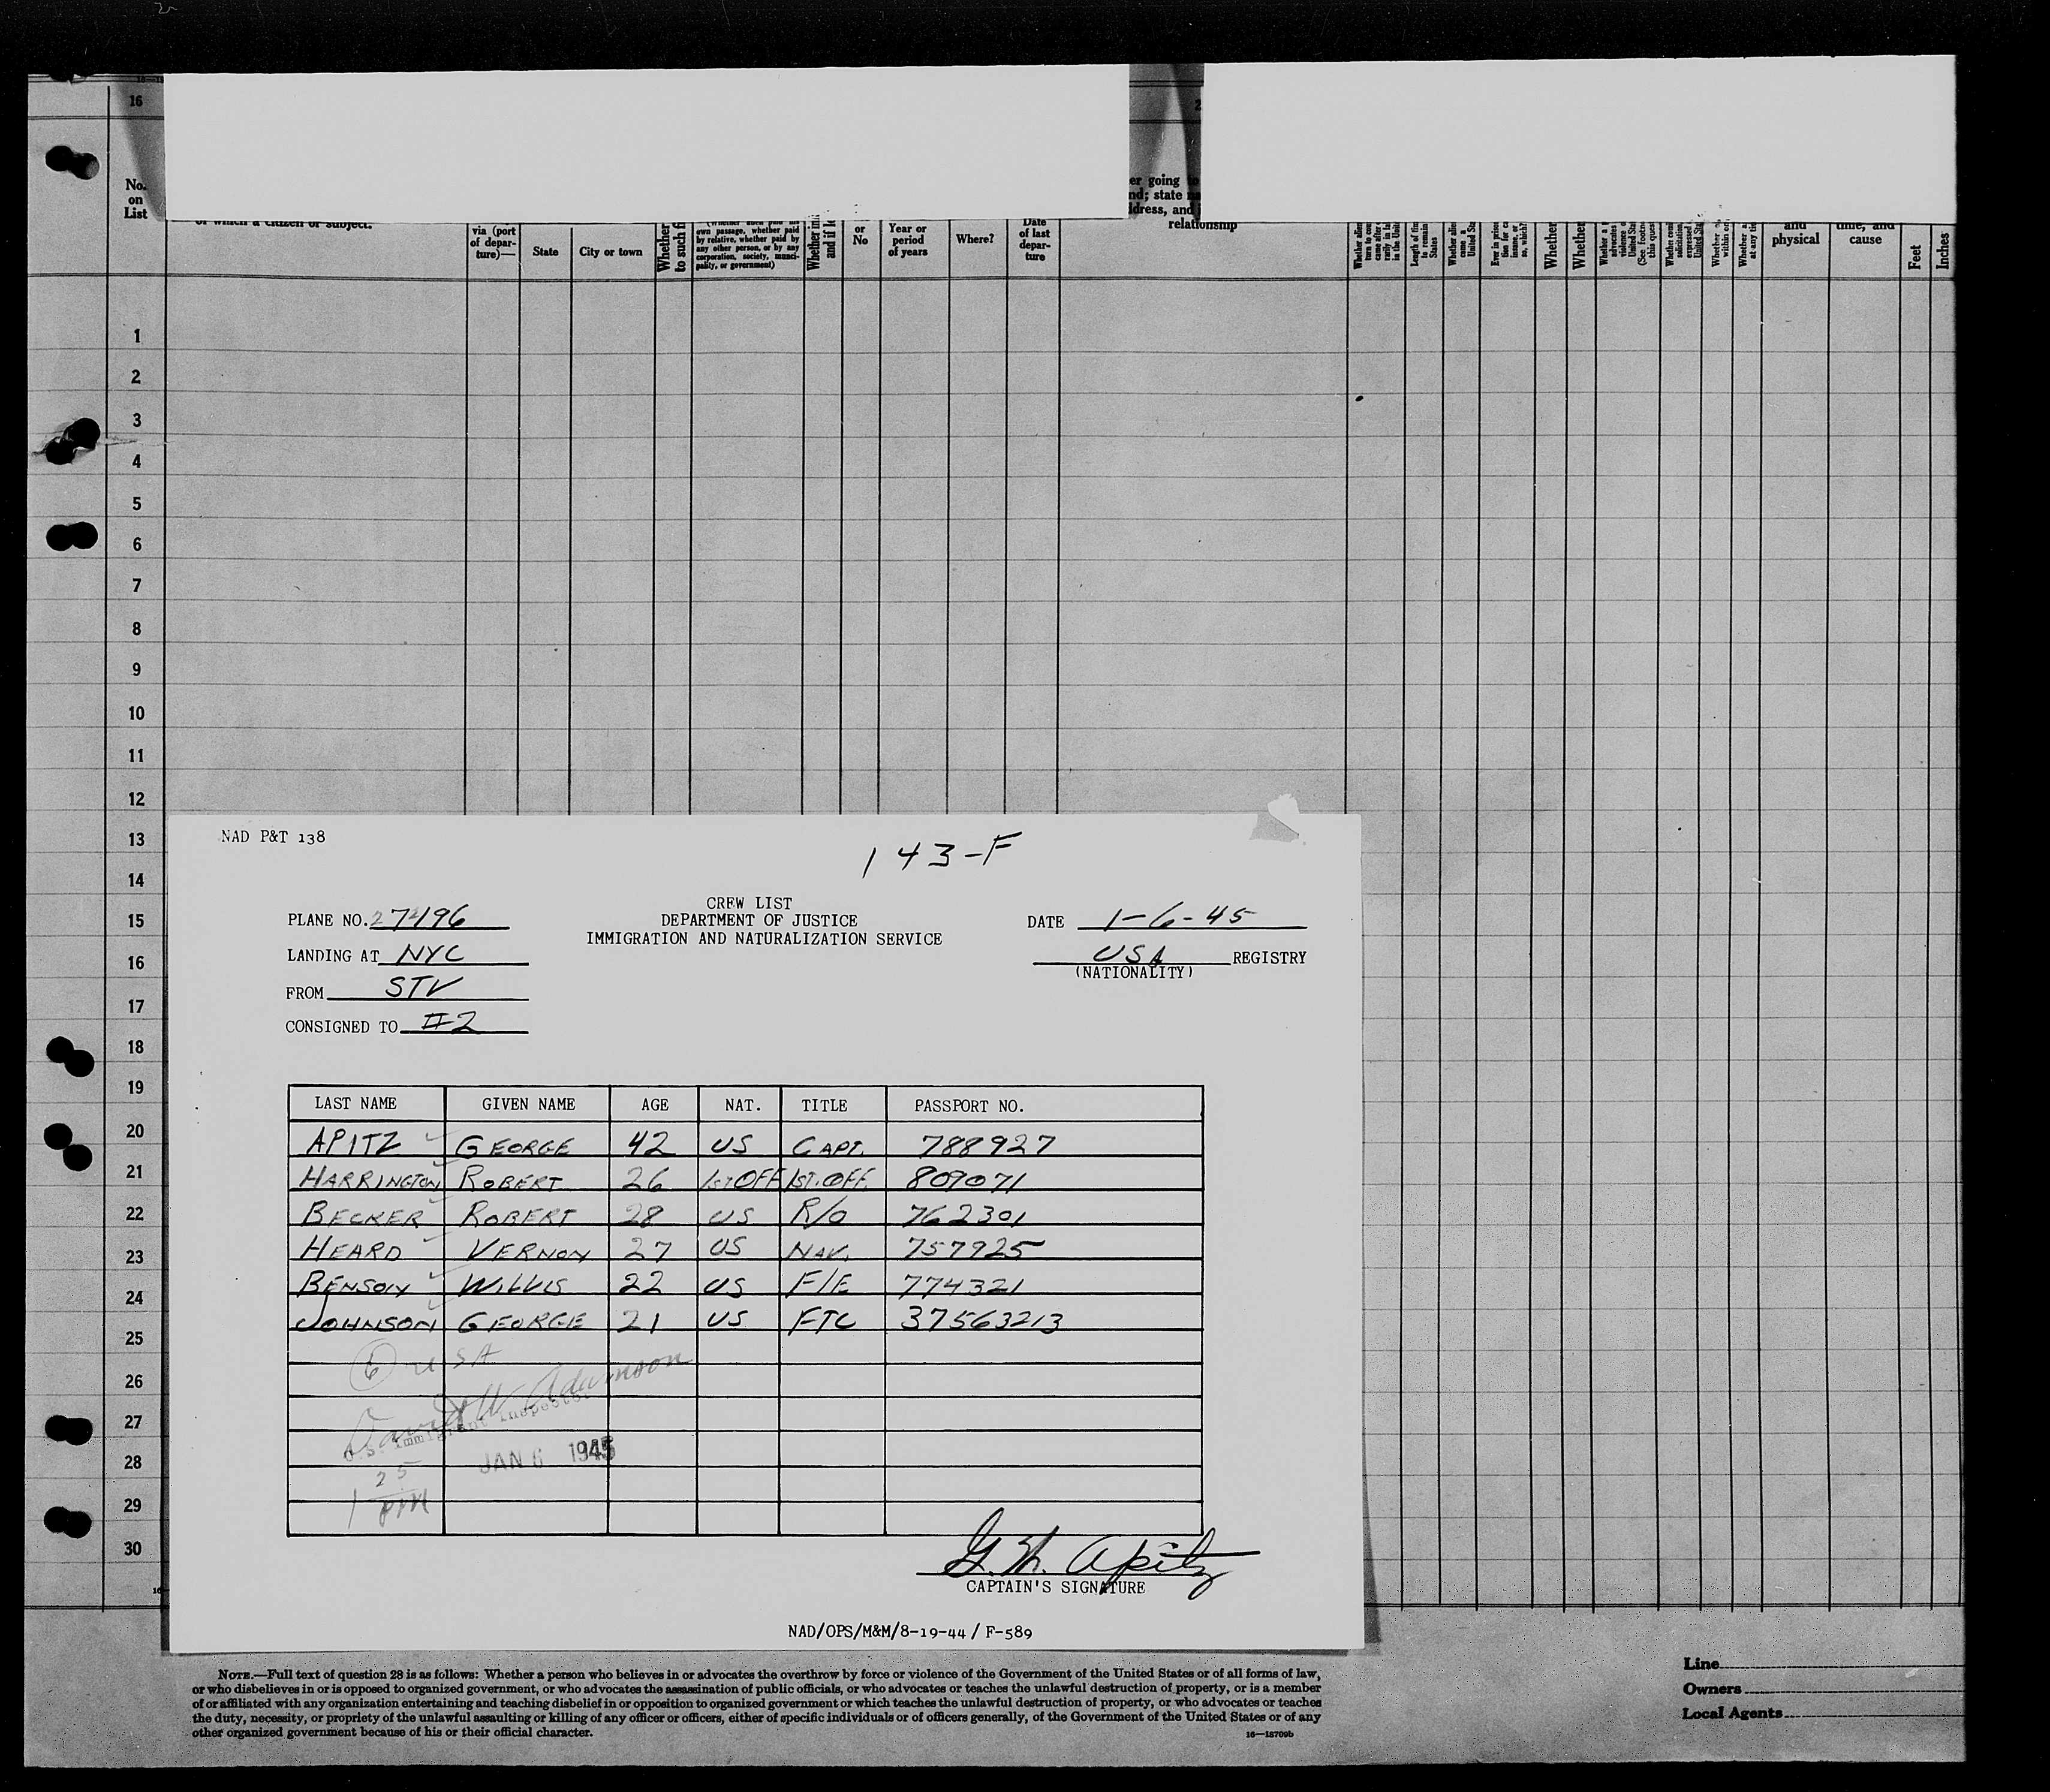 16
No.
on
List
of which a citizen or subject.
via (port
of depar-
ture)—
State
City or town
Whether
to such
own passage, whether paid
by relative, whether paid by
any other person, or by any
corporation, society, munci-
pality, or government)
Whether
and if
or
No
Year or
period
of years
Where?
Date
of last
depar-
ture
er going to
nd; state
ddress, and
relationship
Whether
Whether
and
physical
time, and
cause
Feet
Inches
1
2
3
4
5
6
7
8
9
10
11
12
13
14
15
16
17
18
19
20
21
22
23
24
25
26
27
28
29
30
NAD P&T 138
143-F
CREW LIST
DEPARTMENT OF JUSTICE
IMMIGRATION AND NATURALIZATION SERVICE
PLANE NO. 27296
LANDING AT NYC
FROM STV
CONSIGNED TO #2
DATE 1-6-45
USA REGISTRY
(NATIONALITY)
LAST NAME GIVEN NAME AGE NAT. TITLE PASSPORT NO.
APITZ GEORGE 42 US CAPT. 788927
HARRINGTON ROBERT 26 1ST OFF 1ST. OFF. 809071
BECKER ROBERT 28 US R/O 762301
HEARD VERNON 27 US NAV. 757925
BENSON WILLIS 22 US F/E 774321
JOHNSON GEORGE 21 US FTC 37563213
6 USA
David W Adamson
U.S. Immigrant Inspector
JAN 6 1945
1 25 PM
G. M. Apitz
CAPTAIN'S SIGNATURE
NAD/OPS/M&M/8-19-44 / F-589
NOTE.—Full text of question 28 is as follows: Whether a person who believes in or advocates the overthrow by force or violence of the Government of the United States or of all forms of law,
or who disbelieves in or is opposed to organized government, or who advocates the assassination of public officials, or who advocates or teaches the unlawful destruction of property, or is a member
of or affiliated with any organization entertaining and teaching disbelief in or opposition to organized government or which teaches the unlawful destruction of property, or who advocates or teaches
the duty, necessity, or propriety of the unlawful assaulting or killing of any officer or officers, either of specific individuals or of officers generally, of the Government of the United States or of any
other organized government because of his or their official character.
16—18709b
Line
Owners
Local Agents